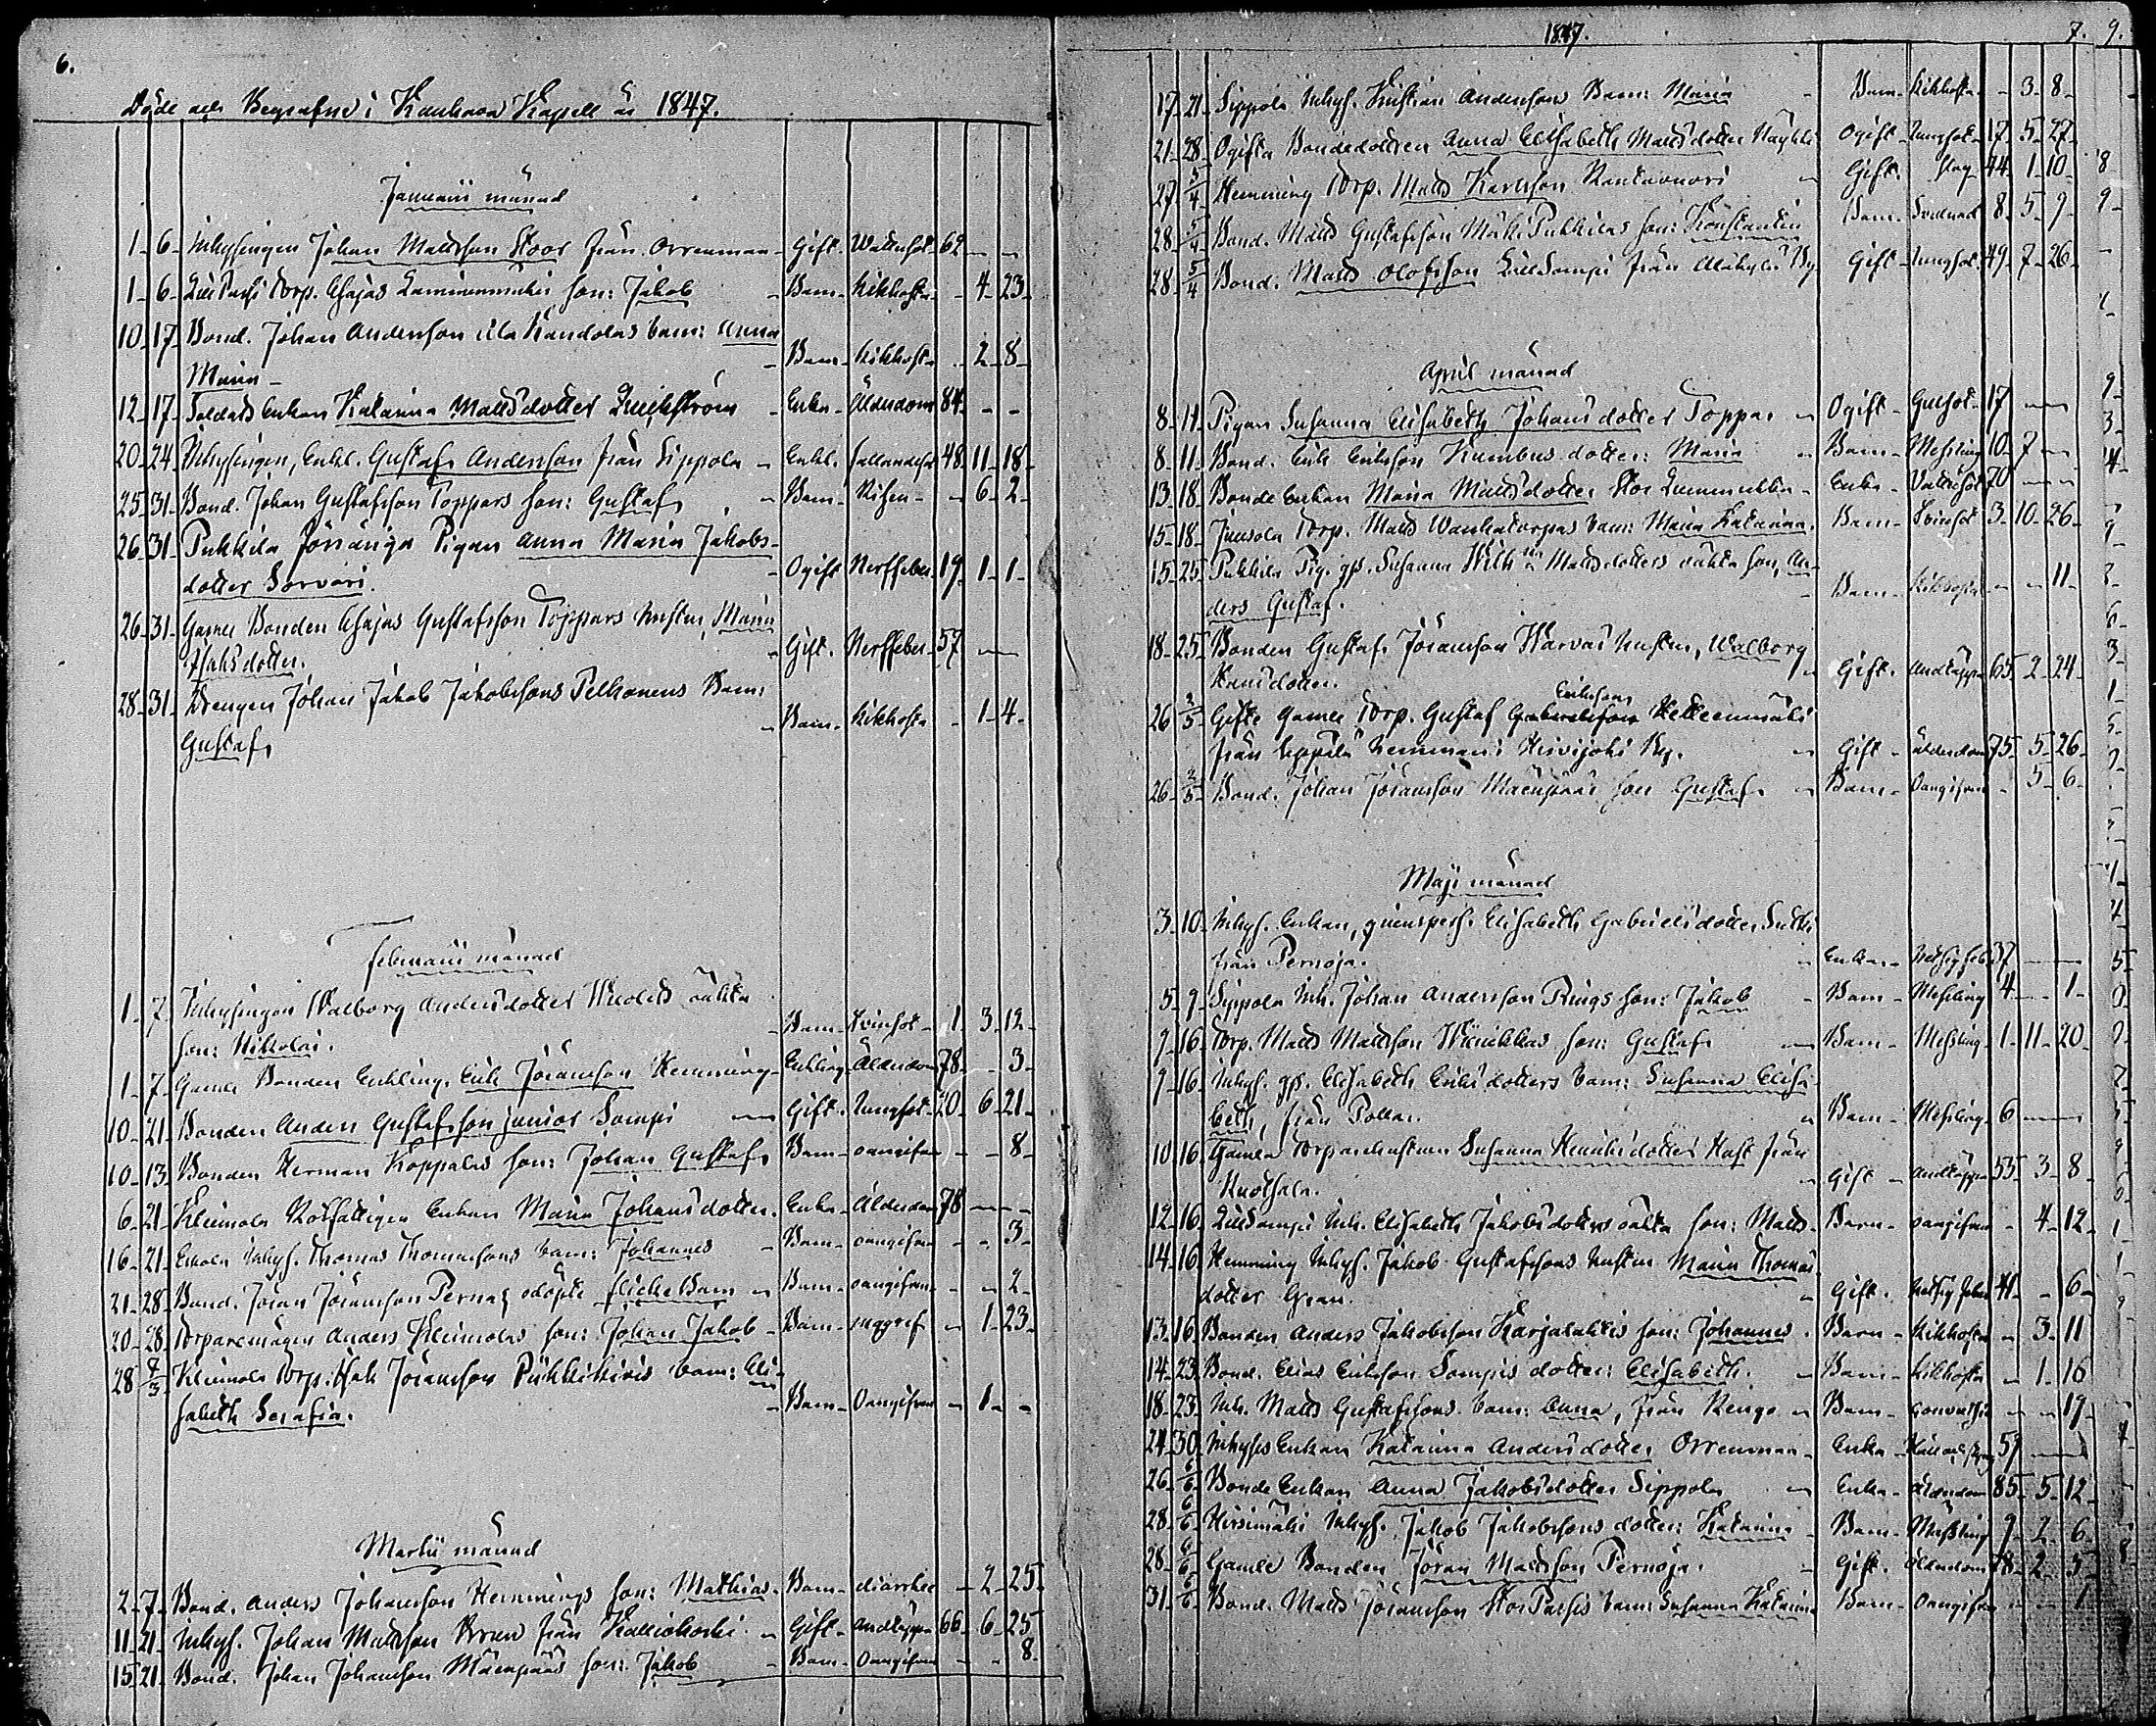 6.
Döde och Begrafne i Kauhava Kapell år 1847.
Januarii månad
1 - 6 - Inhysingen Johan Mattsson Stoor från Orrenmaa - Gift - Wattusot - 62 - -
1 - 6 - Lill Passi Torp. Esajas son: Jakob - Barn - Kikhosta - - 4 - 23
10 - 17 - Bond. Johan Andersson Ala Kandolas barn: Anna
Maria - Barn - Kikhosta - - 2 - 8
12 - 17 - Soldats Enkan Katarina Mattsdotter Quickström - Enka - Ålderdom 84 - - -
20 - 24 - Inhysingen, Enkl. Gustaf Andersson från Sippola - Enkl. fallandesot 48 - 11 - 18
25 - 31 - Bond. Johan Gustafsson Toppars son: Gustaf - Barn - Risen - - 6 - 2
26 - 31 - Pukkila Pigan Anna Maria Jakobs-
dotter Sorvari. - Ogift Nerffeber - 19 - 1 - 1
26 - 31 - Gamle Bonden Esajas Gustafsson Toppars hustru, Maria
Isaksdotter. - Gift. Nerffeber - 57 -
28 - 31 - Drengen Johan Jakob Jakobssons Pelkonens Barn:
Gustaf - Barn - Kikhosta - 1 - 4
Februarii månad
1 - 7 - Inhysingen Walborg Andersdotter oäkta
son: Nikolai. - Barn - Tvinsot - 1 - 3 - 12
1 - 7 - Gamle Bonden Enkling. Erik Jöransson Hemming - Enkling - Ålderdom 78 - - 3
10 - 21 - Bonden Anders Gustafsson junior Sompi - Gift - Lungsot - 20 - 6 - 21
10 - 13 - Bonden Herman Koppalas son: Johan Gustaf - Barn - oangifven - - 8
6 - 21 - Kleimola Rotfattigen Enkan Maria Johansdotter. Enka - Ålderdom 78 - -
16 - 21 - Inhys. Thomas Thomassons barn: Johannes - Barn - oangifven - - 3
21 - 28 - Bond. Jöran Jöransson Pernas odöpte flickebarn - Barn - oangifven - - 2
20 - 28 - Torparemågen Anders Kleimolas son: Johan Jakob - Barn - - 1 - 23
28 7/3 Kleimola Torp. Isak Jöransson barn: Eli-
sabeth Serafia. - Barn - Oangifven - 1 - -
Martii månad
2 - 7 - Bond. Anders Johansson Hemmings son: Mathias. Barn - diarrhee - 2 - 25
11 - 21 - Inhys. Johan Mattsson från Kalliokoski - Gift - Andtäppa 66 - 6 - 25
15 - 21 - Bond. Johan Johansson Mäenpääs son: Jakob - Barn - Oangifven - - 8
1847. 7. 9.
17 - 21 - Sippola Inhys. Kristian Anderssons Barn: Maria - Barn - Kikhosta - 3 - 8
21 - 28 - Ogifta Bondedottren Anna Elisabeth Mattsdotter - Ogift - Lungsot - 17 - 5 - 27
27 5/4 Hemming Torp. Matts Karlsson Rantavuori - Gift. 44 - 1 - 10
28 5/4 Bond. Matts Gustafsson Mäki Pukkilas son: Konstantin Barn - 8 - 5 - 9
28 5/4 Bond. Matts Olofsson LillSompi från Alakylä By Gift - Lungsot - 49 - 7 - 26
April månad
8 - 11 - Pigan Susanna Elisabeth Johansdotter Toppar - Ogift - Gulsot - 17 -
8 - 11 - Bond. Erik Eriksson dotter: Maria - Barn - Messling 10 - 7 -
13 - 18 - Bonde Enkan Maria Mattsdotter Stor - Enka - Vattusot 70 -
15 - 18 - Jussola Torp. Matts Wanhatorpas barn: Maria Katarina. Barn - Tvinsot 3 - 10 - 26
15 - 25 - Pukkila Pig. gp. Susanna Wilh:a Mattsdotters oäkta son, An-
ders Gustaf. - Barn - Kikhosta - - 11
18 - 25 - Bonden Gustaf Jöransson Harvas hustru, Walborg
Hansdotter. - Gift. Andtäppa 65 - 2 - 24
26 2/5 Gifte Gamle Torp. Gustaf Gabrielsson Eriksson
från hemman i Hirvijoki By. - Gift - ålderdom 75 - 5 - 26
26 2/5 Bond. Johan Jöransson Mäenpääs son Gustaf - Barn - Oangifven - 5 - 6
Maji månad
3 - 10 - Inhys. Enkan, Elisabeth Gabrielsdotter
från Pernaja. - Enka - 37 -
5 - 9 - Sippola Inh. Johan Andersson Rings son: Jakob - Barn - Messling 4 - - 1
9 - 16 - Torp. Matts Mattsson son: Gustaf - Barn - Messling - 1 - 11 - 20
9 - 16 - Inhys. gp. Elisabeth Eriksdotters barn: Susanna Elisa-
beth, från Pollar. - Barn - Messling - 6 -
10 16 Gamla Torparehustrun Susanna Henriksdotter Hast från
Ruotsala. - Gift - Andtäppa 53 - 3 - 8
12 - 16 - LillSompi Inh. Elisabeth Jakobsdotters oäkta son: Matts - Barn - oangifven - 4 - 12
14 - 16 - Hemming Inhys. Jakob Gustafssons hustru Maria Thomas-
dotter Gran. - Gift. 41 - - 6
13 - 16 - Bonden Anders Jakobsson Karjalahtis son: Johannes. Barn - Kikhosta - 3 - 11
14 - 23 - Bond. Elias Eriksson Sompis dotter: Elisabeth. - Barn - Kikhosta - 1 - 16
18 - 23 - Inh. Matts Gustafssons barn: Anna, från Rengo - Barn - - - 19
24 - 30 - Inhyses Enkan Katarina Andersdotter Orrenmaa - Enka - 59 -
26 6/6 Bonde Enkan Anna Jakobsdotter Sippola - Enka - ålderdom 85 - 5 - 12
28 6/6 Hirsimäki Inhys. Jakob Jakobssons dotter: Katarina - Barn - Messling 9 - 2 - 6
28 6/6 Gamle Bonden Jöran Mattsson Pernaja. - Gift. ålderdom 78 - 2 - 5
31 6/6 Bond. Matts Jöransson Stor Passis barn: Susanna Katarina Barn - Oangifven - - 1